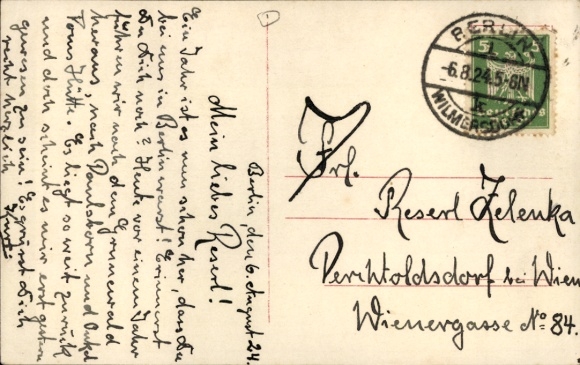 Berlin, den 6. August 24.
Mein liebes Reserl!
Ein Jahr ist es nun schon her, daß Du
bei uns in Berlin warst! Erinnerst
Du Dich noch? Heute vor einem Jahr
fuhren wir nach dem Grunewald
heraus, nach Paulsborn und Onkel
Toms Hütte. Es liegt so weit zurück
und doch scheint es mir erst gestern
gewesen zu sein! Es grüßt Dich
recht herzlich
BERLIN
-6.8.24.5-6N
WILMERSDORF
5
Frl.
Reserl Zelenka
Perchtoldsdorf bei Wien
Wienergasse No. 84.